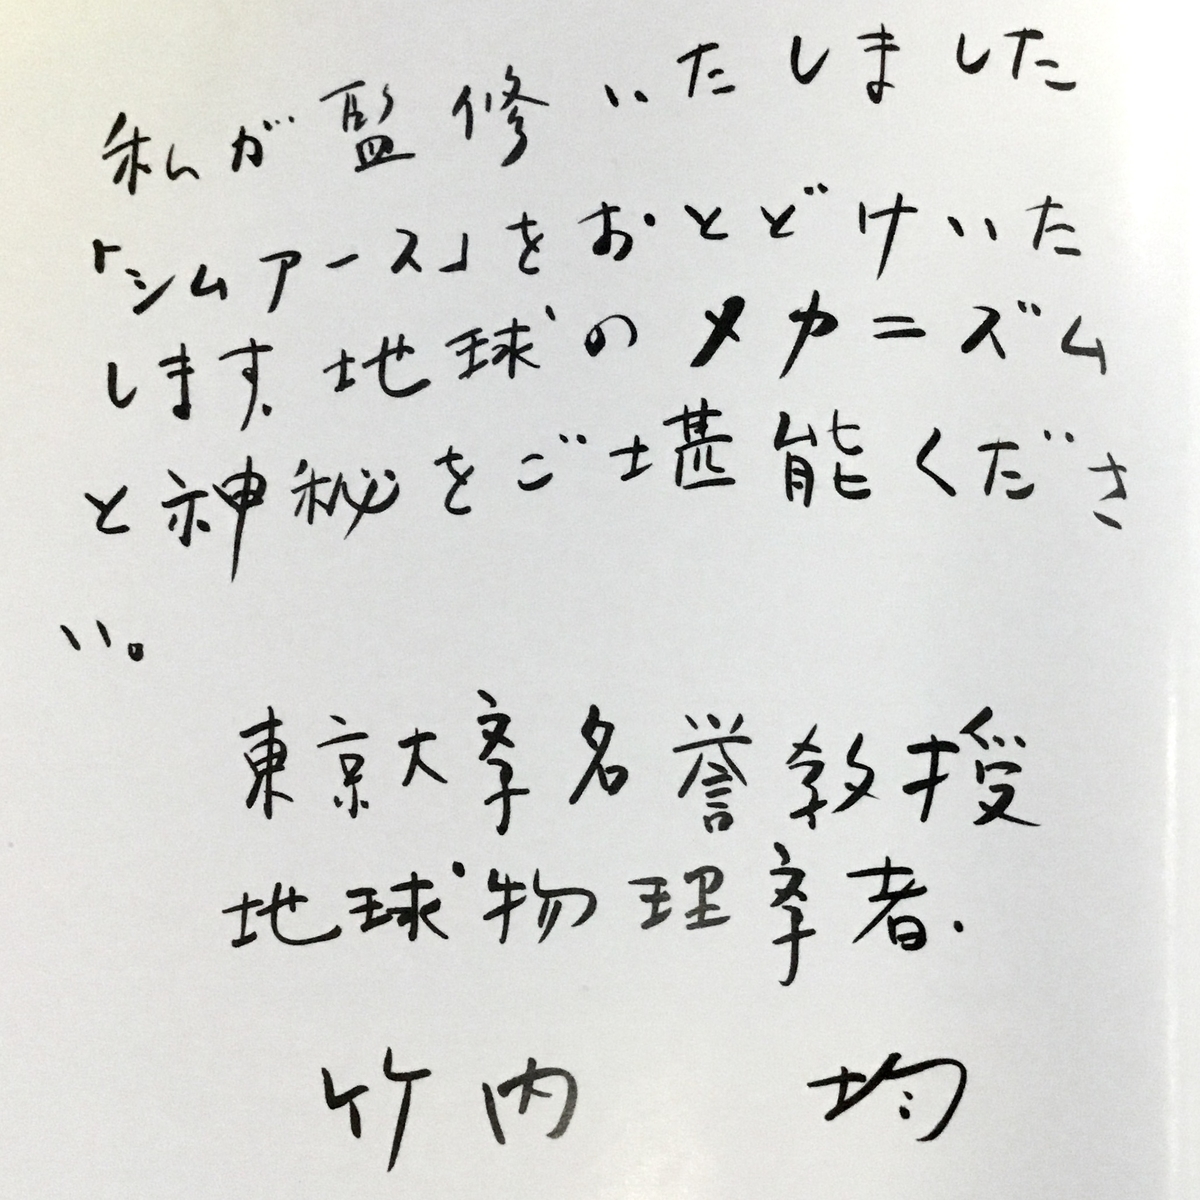 私が監修いたしました
「シムアース」をおとどけいた
します。地球のメカニズム
と神秘をご堪能くださ
い。
東京大学名誉教授
地球物理学者.
竹内 均